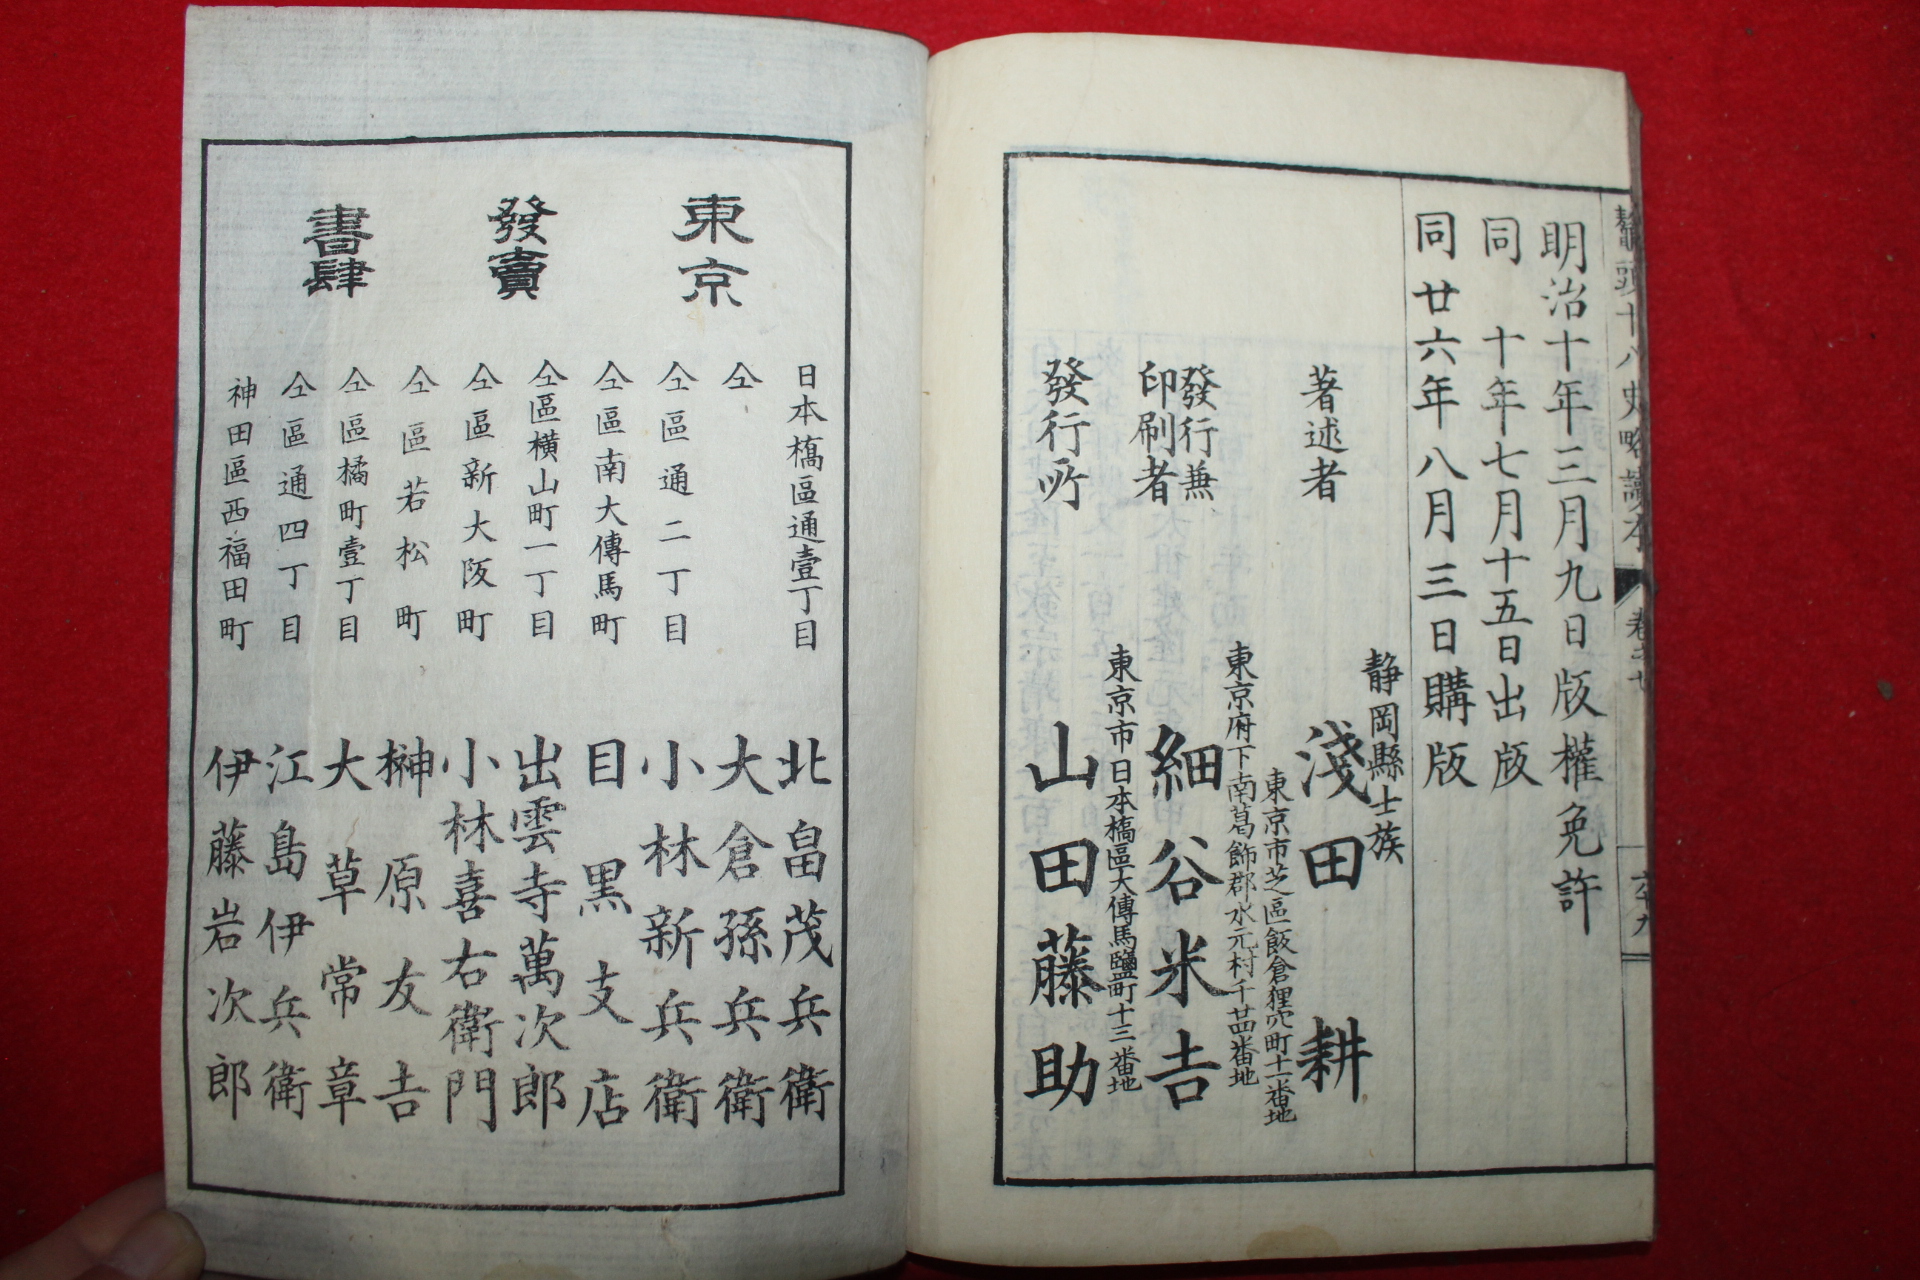 鼇頭十八史略讀本
卷之七
六十九
明治十年三月九日版權免許
同 十年七月十五日出版
同廿六年八月三日購版
靜岡縣士族
著述者 淺田耕
東京市芝區飯倉狸穴町十一番地
發行兼
印刷者 細谷米吉
東京府下南葛飾郡水元村千廿四番地
發行所 山田藤助
東京市日本橋區大傳馬鹽町十三番地
東京
發賣
書肆
日本橋區通壹丁目 北畠茂兵衛
仝 大倉孫兵衛
仝區通二丁目 小林新兵衛
仝區南大傳馬町 目黑支店
仝區橫山町一丁目 出雲寺萬次郎
仝區新大阪町 小林喜右衛門
仝區若松町 榊原友吉
仝區橘町壹丁目 大草常章
仝區通四丁目 江島伊兵衛
神田區西福田町 伊藤岩次郎